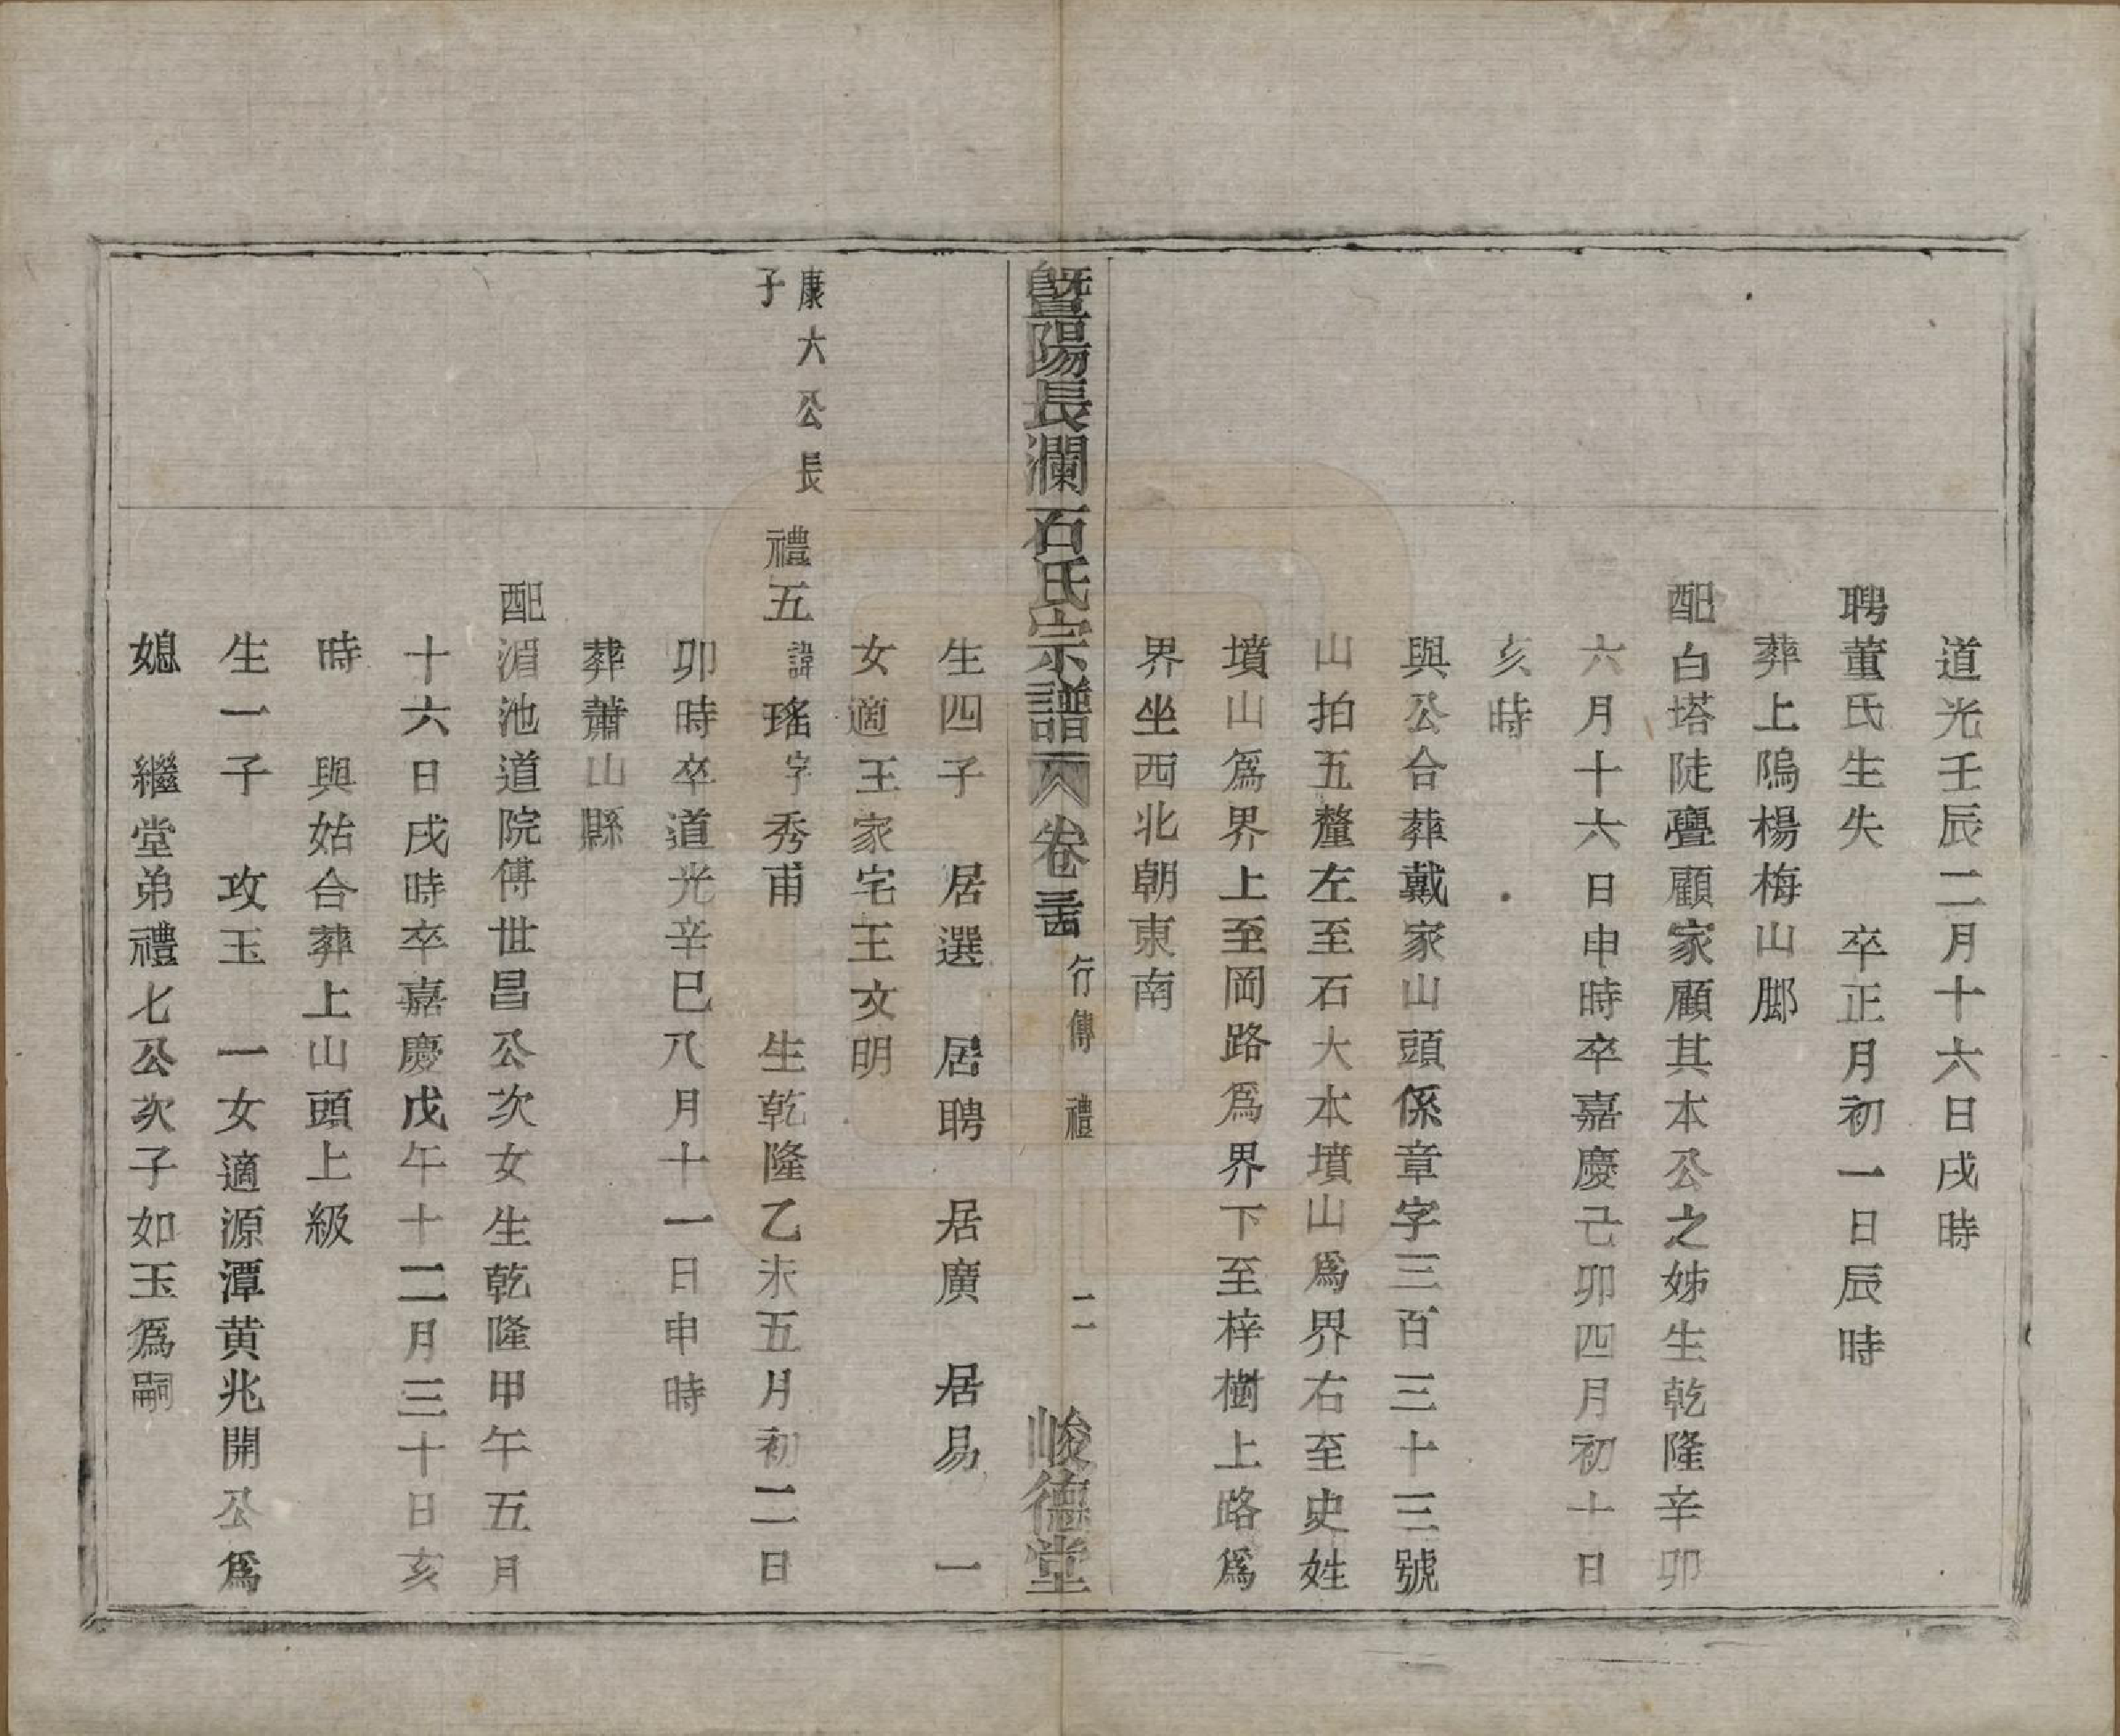 道光壬辰二月十六日戌時
聘董氏生失 卒正月初一日辰時
葬上鴿楊梅山脚
配白塔陡亹顧家顧其本公之姊生乾隆辛卯
六月十六日申時卒嘉慶己卯四月初十日
亥時
與公合葬戴家山頭係章字三百三十三號
山拍五釐左至石大本墳山爲界右至史姓
墳山爲界上至岡路爲界下至梓樹上路爲
界坐西北朝東南
暨陽長瀾石氏宗譜 卷 行傳 禮 二 峻德堂
生四子 居選 居聘 居廣 居易 一
女適王家宅王文明
康六公長
子
禮五 諱瑤字秀甫 生乾隆乙未五月初二日
卯時卒道光辛巳八月十一日申時
葬蕭山縣
配湄池道院傅世昌公次女生乾隆甲午五月
十六日戌時卒嘉慶戊午十二月三十日亥
時 與姑合葬上山頭上級
生一子 攻玉 一女適源潭黄兆開公爲
媳 繼堂弟禮七公次子如玉爲嗣